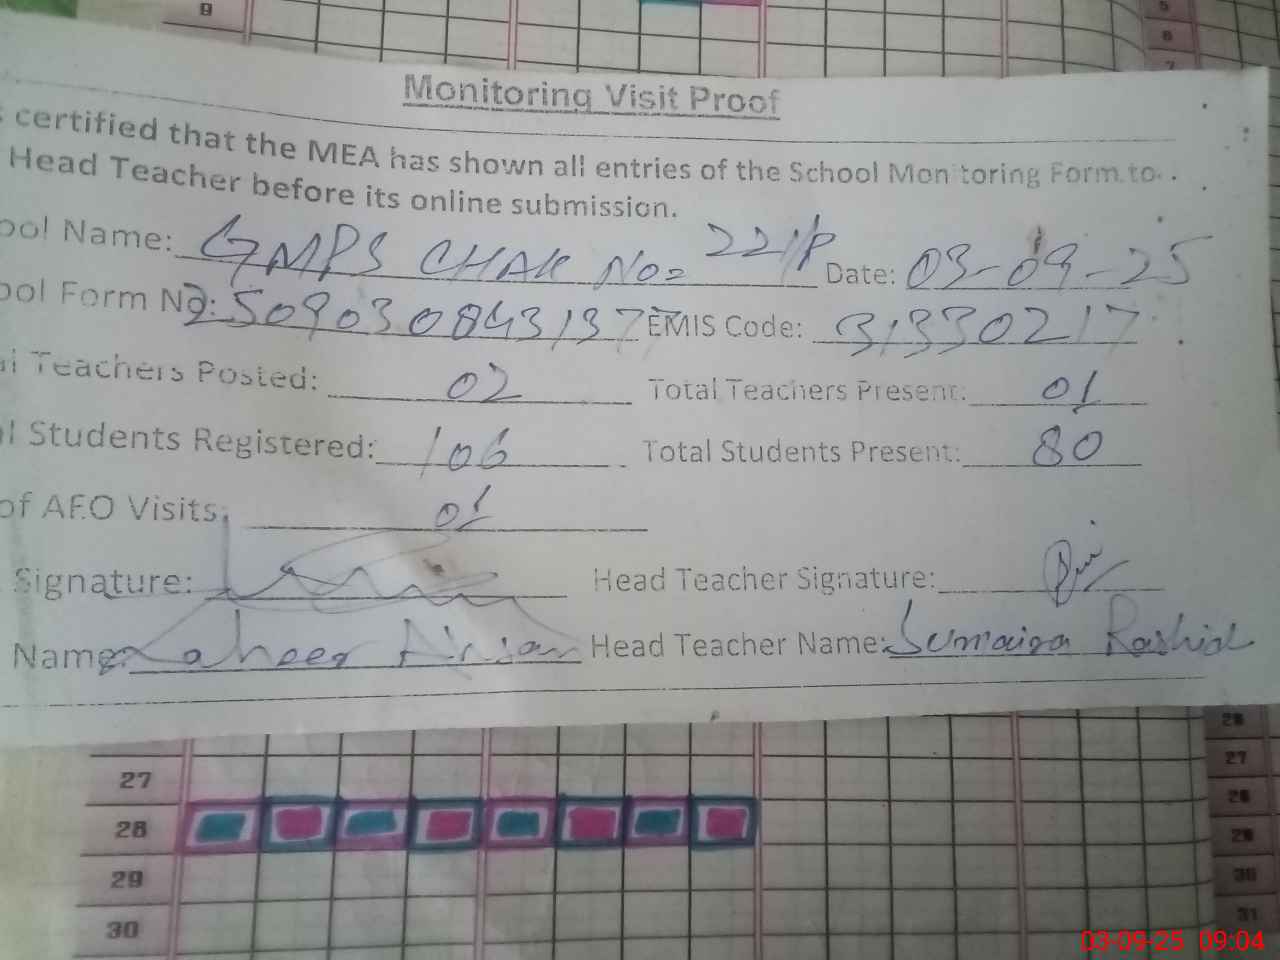 9
5
6
7
Monitoring Visit Proof
certified that the MEA has shown all entries of the School Monitoring Form to
Head Teacher before its online submission.
ool Name: GMPS CHAK No= 221/P Date: 03-09-25
ool Form No: EMIS Code: 31330217
al Teachers Posted: 02 Total Teachers Present: 01
al Students Registered: 106 Total Students Present: 80
of AEO Visits: 01
Signature: Head Teacher Signature:
Name: Head Teacher Name: Sumaira Rashid
27
28
29
30
26
27
28
29
30
31
03-09-25 09:04